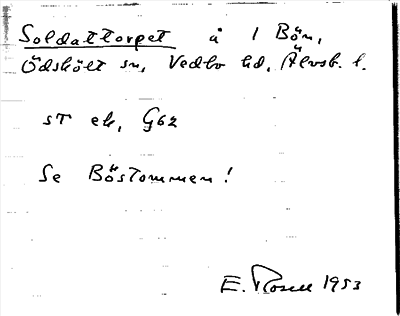 Soldattorpet å 1 Bön,
Ödskölt sn, Vedbo hd, Älvsb. l.
ST ek, G62
Se Böstommen!
E. Rosell 1953